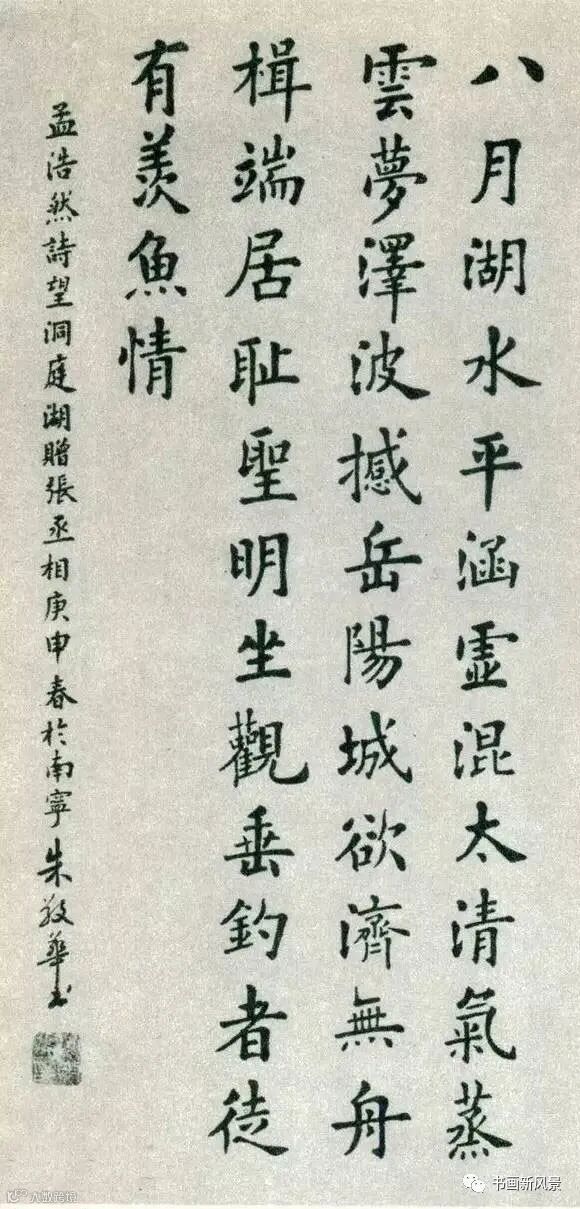 八月湖水平涵虛混太清氣蒸
雲夢澤波撼岳陽城欲濟無舟
楫端居耻聖明坐觀垂釣者徒
有羨魚情
孟浩然詩望洞庭湖贈張丞相庚申春於南寧朱敬華書
书画新风景